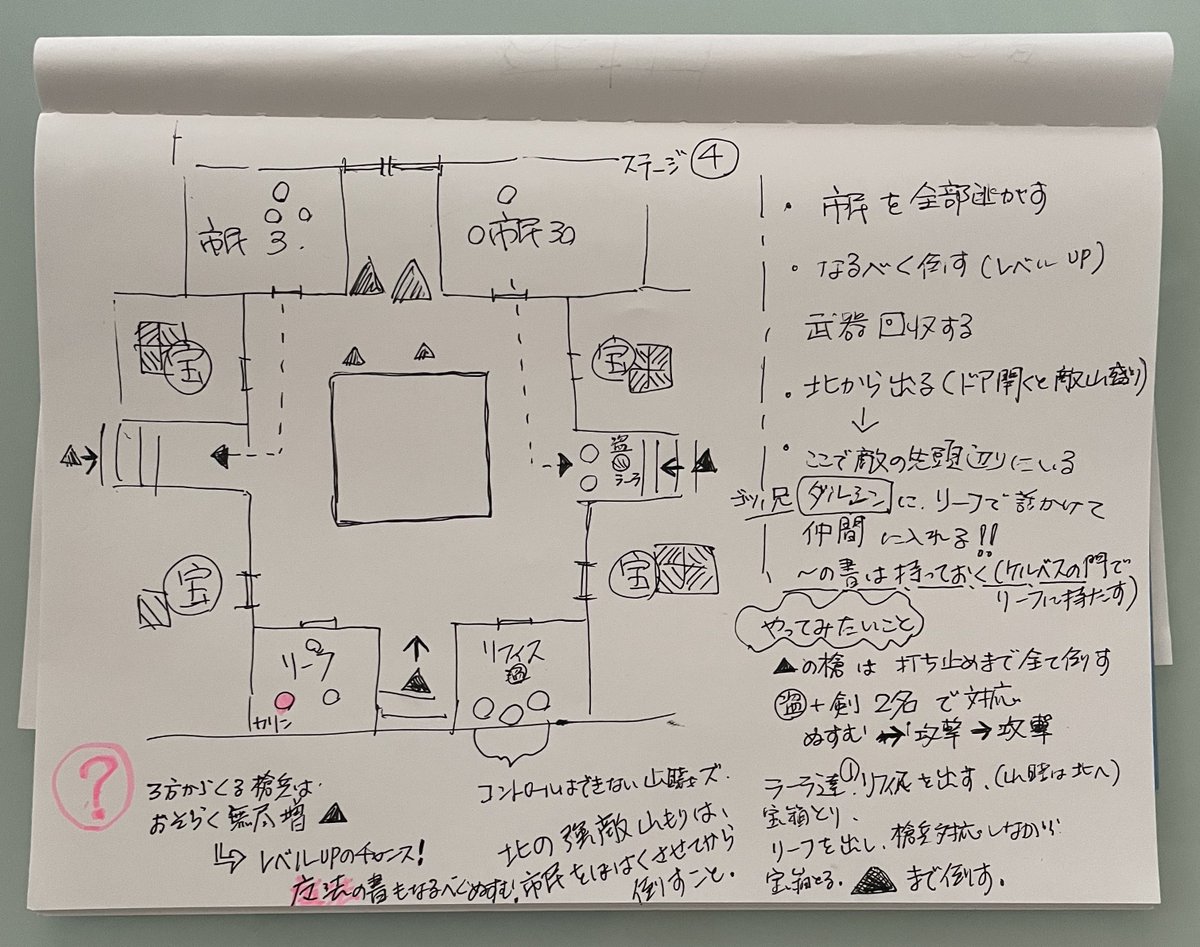 ステージ④
市民 3.
市民 3
宝
宝
盗
ラーラ
宝
宝
リーフ
カリン
リフィス
盗
・市民を全部逃がす
・なるべく倒す(レベルUP)
武器回収する
・北から出る(ドア開くと敵山盛り)
↓
・ここで敵の先頭辺りにいる
ダルシンに、リーフで話かけて
仲間に入れる!!
〜の書は持っておく(ケルベスの門で
リーフに持たす)
やってみたいこと
▲の槍は 打ち止めまで全て倒す
盗+剣 2名で対応
ぬすむ ↔ 攻撃 → 攻撃
ラーラ達①リフィスを出す、(山賊は北へ)
宝箱とり、
リーフを出し、槍兵対応しながら
宝箱とる、▲まで倒す。
?
3方からくる槍兵は
おそらく無尽増▲
レベルUPのチャンス!
魔法の書もなるべくぬすむ!
コントロールはできない山賊ーズ.
北の強敵山もりは、
市民をほぼはくさせてから
倒すこと.